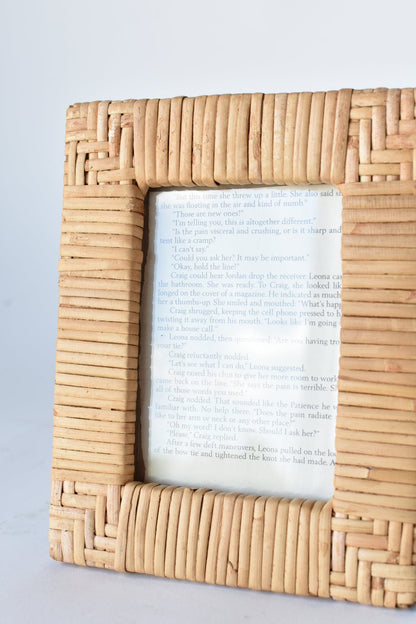 But this tone she threw up a little. She also said
she was floating in the air and kind of numb."
"Those are new ones?"
"I'm telling you, this is altogether different."
"Is the pain visceral and crushing, or is it sharp and
tent like a cramp?
"I can't say."
"Could you ask her? It may be important."
"Okay, hold the line!"
Craig could hear Jordan drop the receiver. Leona
the bathroom. She was ready. To Craig, she looked lik
longed on the cover of a magazine. He indicated as much
her a thumbs-up. She smiled and mouthed "What's hap
Craig shrugged, keeping the cell phone pressed to h
twisting it away from his mouth. "Looks like I'm going
make a house call."
Leona nodded, then questioned "Are you having tro
your tie?"
Craig reluctantly nodded.
"Let's see what I can do," Leona suggested.
Craig raised his chin to give her more room to work
came back on the line. "She says the pain is terrible. S
all of those words you used."
Craig nodded. That sounded like the Patience he w
familiar with. No help there. "Does the pain radiate
like to her arm or neck or any other place?"
"Oh my word! I don't know. Should I ask her?"
"Please," Craig replied.
After a few deft maneuvers, Leona pulled on the loo
of the bow tie and tightened the knot she had made.